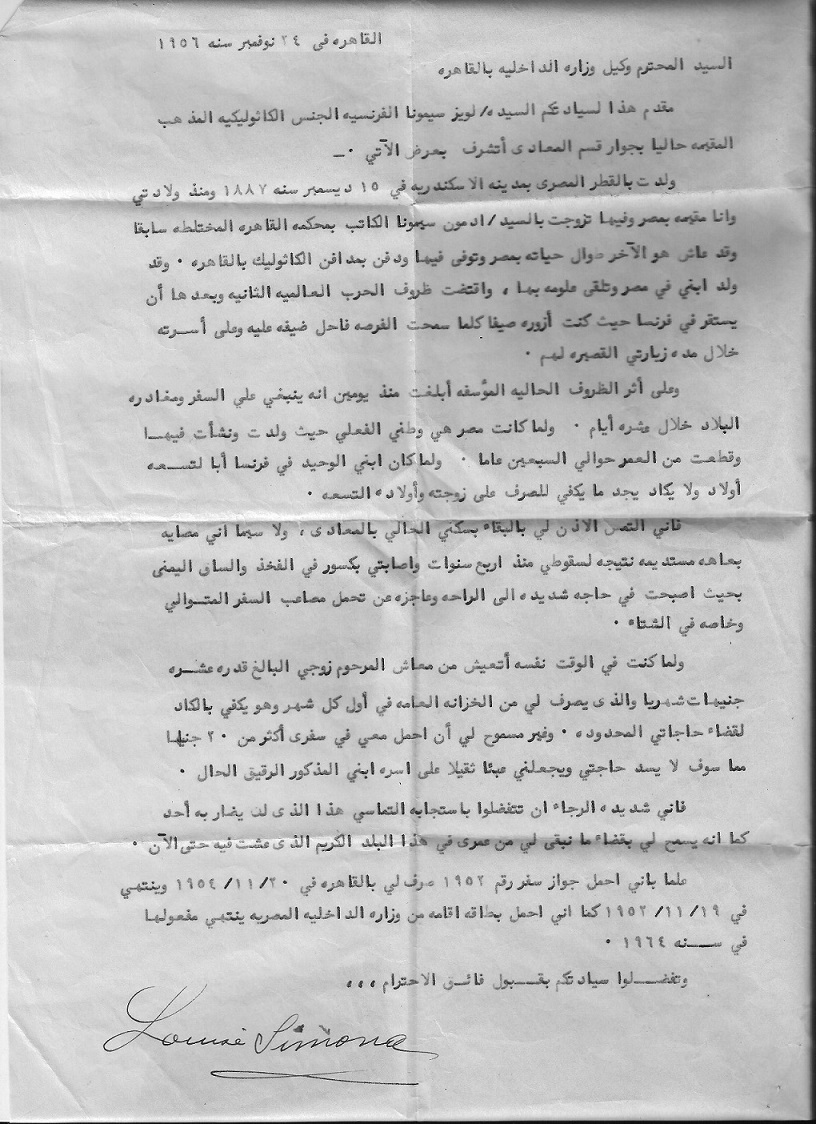 القاهره فى ٢٤ نوفمبر سنه ١٩٥٦
السيد المحترم وكيل وزاره الداخليه بالقاهره
مقدم هذا لسيادتكم السيده/ لويز سيمونا الفرنسيه الجنس الكاثوليكيه المذهب
المقيمه حاليا بجوار قسم المعادى أتشرف بعرض الآتي ٠ــ
ولدت بالقطر المصرى بمدينه الاسكندريه في ١٥ ديسمبر سنه ١٨٨٧ ومنذ ولادتي
وانا مقيمه بمصر وفيها تزوجت بالسيد/ ادمون سيمونا الكاتب بمحكمه القاهره المختلطه سابقا
وقد عاش هو الآخر طوال حياته بمصر وتوفى فيها ودفن بمدافن الكاثوليك بالقاهره ٠ وقد
ولد ابني في مصر وتلقى علومه بها ، واقتضت ظروف الحرب العالميه الثانيه وبعدها أن
يستقر في فرنسا حيث كنت أزوره صيفا كلما سمحت الفرصه فاحل ضيفه عليه وعلى أسرته
خلال مده زيارتي القصيره لهم ٠
وعلى أثر الظروف الحاليه المؤسفه أبلغت منذ يومين انه ينبغي علي السفر ومغادره
البلاد خلال عشره أيام ٠ ولما كانت مصر هي وطني الفعلي حيث ولدت ونشأت فيها
وقطعت من العمر حوالي السبعين عاما ٠ ولما كان ابني الوحيد في فرنسا أبا لتسعه
أولاد ولا يكاد يجد ما يكفي للصرف على زوجته وأولاده التسعه ٠
فاني التمس الاذن لي بالبقاء بسكني الحالي بالمعادى ، ولا سيما اني مصابه
بعاهه مستديمه نتيجه لسقوطي منذ اربع سنوات واصابتي بكسور في الفخذ والساق اليمنى
بحيث اصبحت في حاجه شديده الى الراحه وعاجزه عن تحمل مصاعب السفر المتوالي
وخاصه في الشتاء ٠
ولما كنت في الوقت نفسه أتعيش من معاش المرحوم زوجي البالغ قدره عشره
جنيهات شهريا والذى يصرف لي من الخزانه العامه في أول كل شهر وهو يكفي بالكاد
لقضاء حاجاتي المحدوده ٠ وغير مسموح لي أن احمل معي في سفرى أكثر من ٢٠ جنيها
مما سوف لا يسد حاجتي ويجعلني عبئا ثقيلا على اسره ابني المذكور الرقيق الحال ٠
فاني شديده الرجاء ان تتفضلوا باستجابه التماسي هذا الذى لن يضار به أحد
كما انه يسمح لي بقضاء ما نبقى لي من عمرى في هذا البلد الكريم الذى عشت فيه حتى الآن ٠
علما باني احمل جواز سفر رقم ١٩٥٢ صرف لي بالقاهره في ١٩٥٤/١١/٢٠ وينتهي
في ١٩٥٢/١١/١٩ كما اني احمل بطاقه اقامه من وزاره الداخليه المصريه ينتهي مفعولها
في سـنه ١٩٦٤ ٠
وتفضـلوا سيادتكم بقـبول فائـق الاحترام ،،،
Louise Simona